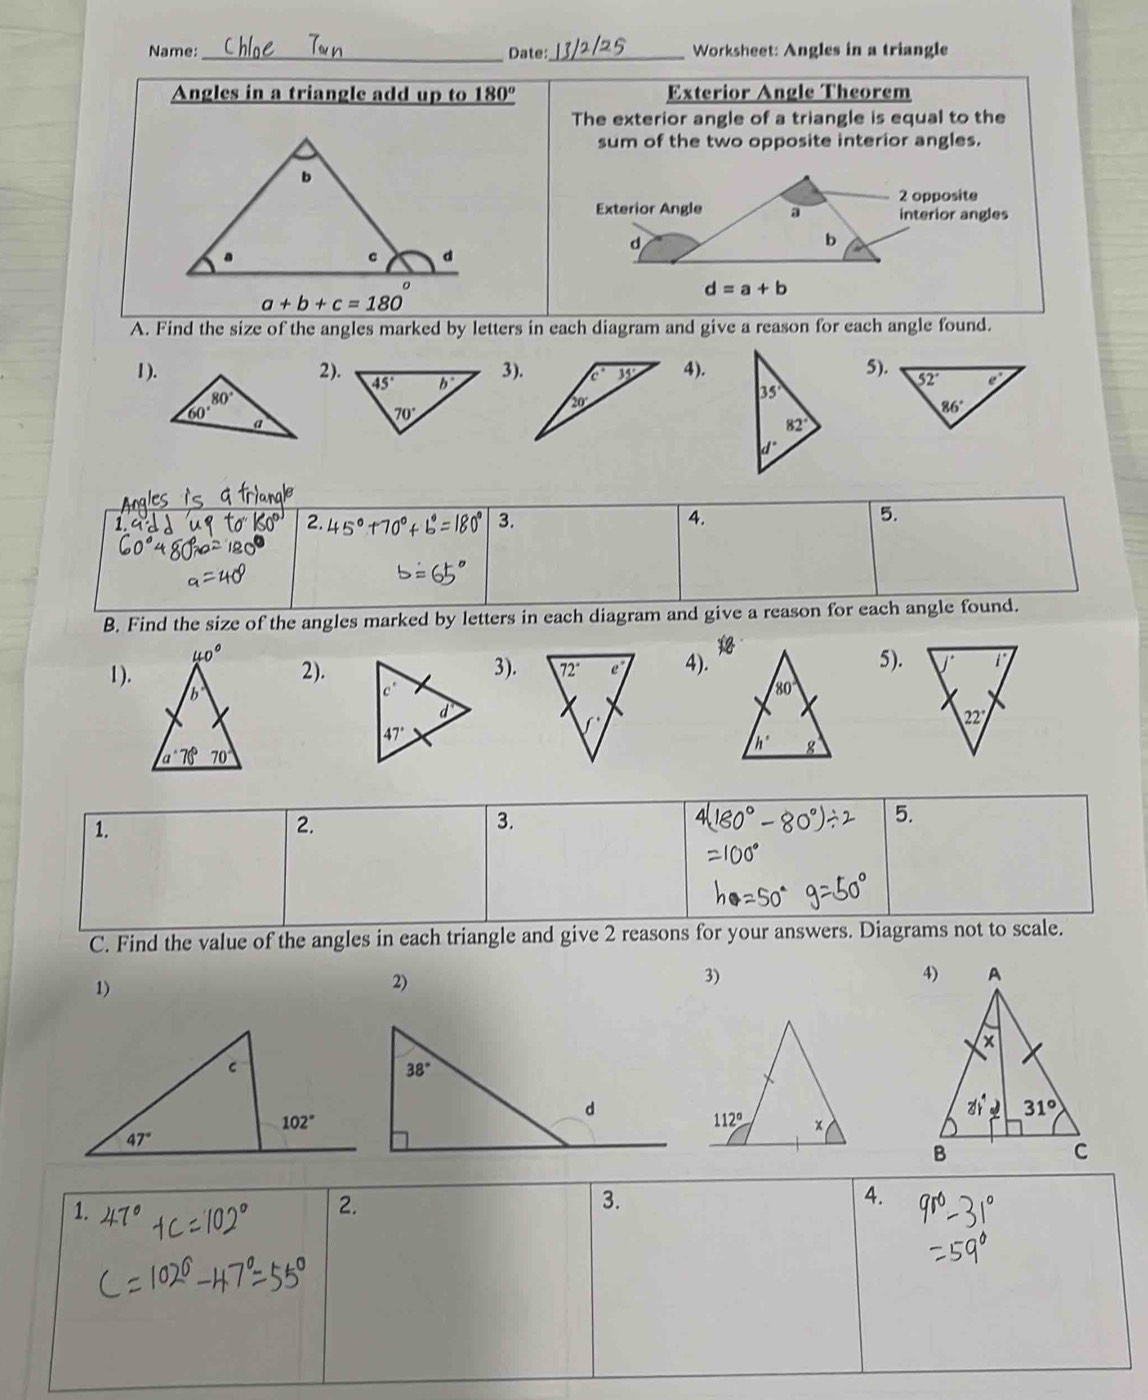 Name: Chloe Tan Date: 13/2/25 Worksheet: Angles in a triangle
Angles in a triangle add up to 180°
b
a c d
a + b + c = 180°
Exterior Angle Theorem
The exterior angle of a triangle is equal to the
sum of the two opposite interior angles.
Exterior Angle
2 opposite
interior angles
a
d b
d = a + b
A. Find the size of the angles marked by letters in each diagram and give a reason for each angle found.
1). 80° 60° a
2). 45° b° 70°
3). c° 35° 20°
4). 35° 82° d°
5). 52° e° 86°
Angles is a triangle
1. add up to 180°
a=40°
2. 45°+70°+b°=180°
b=65°
3.
4.
5.
B. Find the size of the angles marked by letters in each diagram and give a reason for each angle found.
1). 40° b° a° 70° 70°
2). c° d° 47°
3). 72° e° f°
4). 80° h° g
5). j° i° 22°
1.
2.
3.
4(180°-80°)÷2
=100°
h=50° g=50°
5.
C. Find the value of the angles in each triangle and give 2 reasons for your answers. Diagrams not to scale.
1) c 47° 102°
2) 38° d
3) 112° x
4) A x 31° B C
1. 47° +c=102°
c=102°-47°=55°
2.
3.
4. 90°-31°
=59°